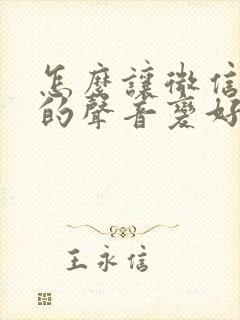 怎麽讓微信
的聲音變好
王永信